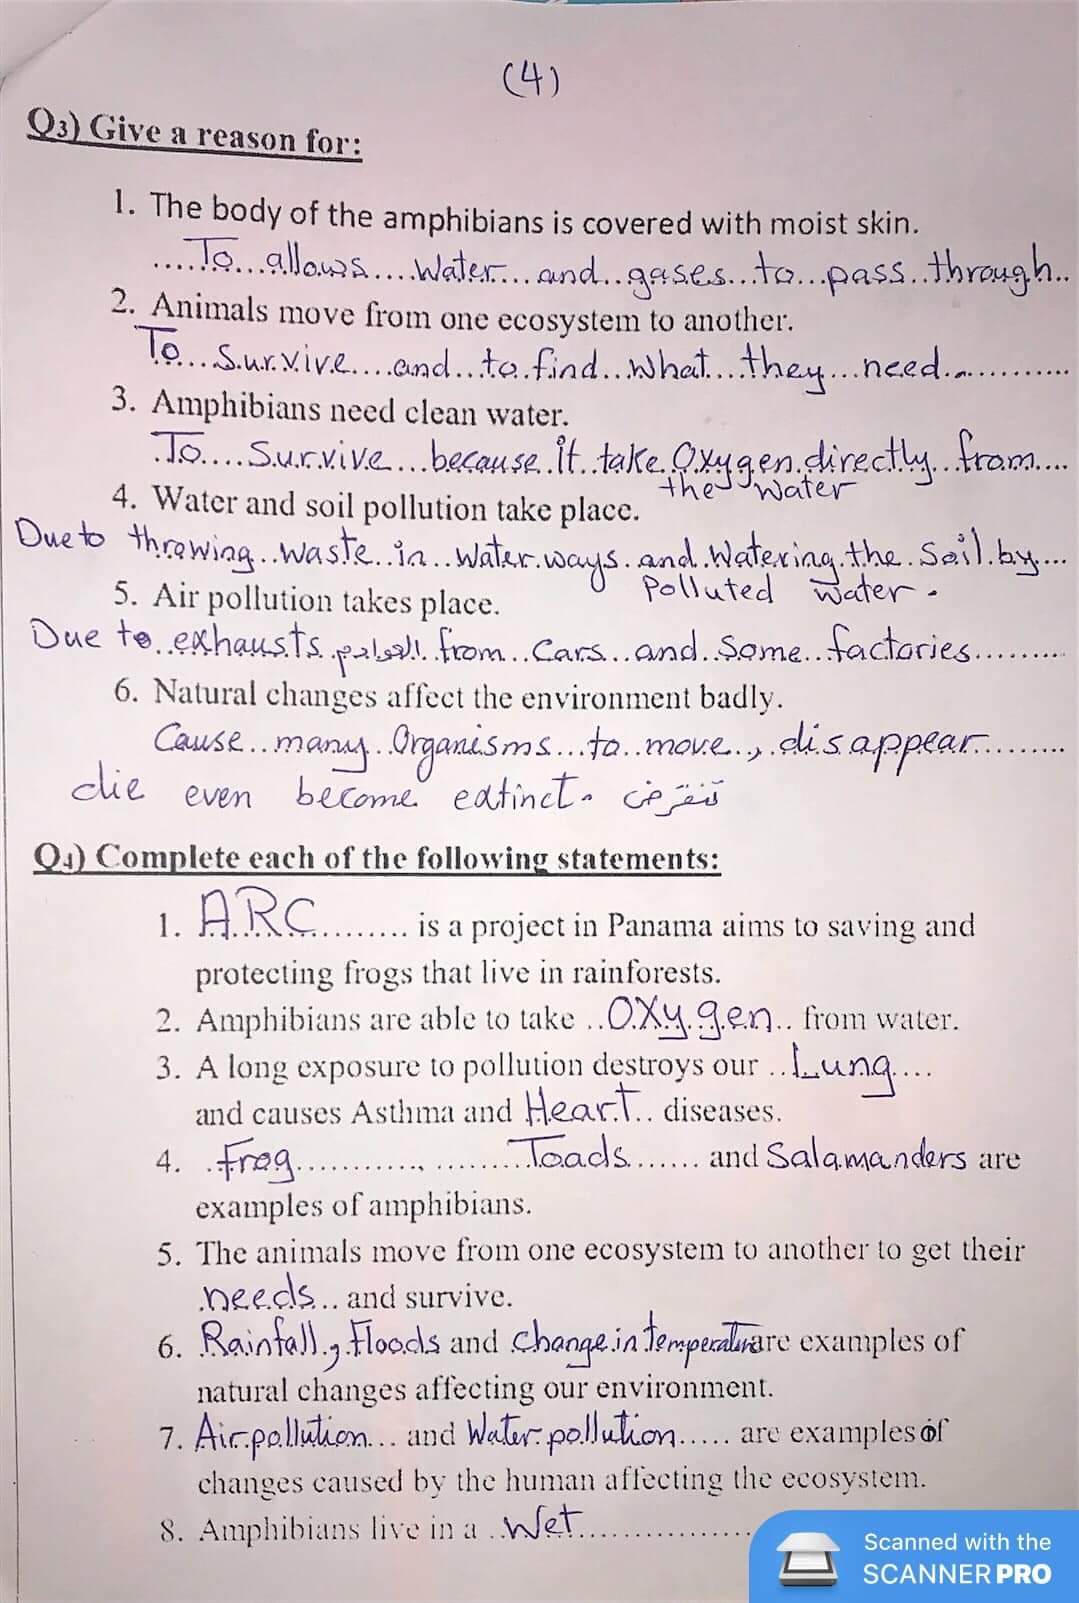 (4)
Q3) Give a reason for:
1. The body of the amphibians is covered with moist skin.
.....To...allows....Water...and..gases...to...pass..through..
2. Animals move from one ecosystem to another.
To...Survive....and..to.find..what...they...need..............
3. Amphibians need clean water.
.To....Survive...because.it..take.Oxygen.directly..from....
the water
4. Water and soil pollution take place.
Due to throwing..waste..in..water.ways..and.Watering.the.Soil.by...
Polluted water.
5. Air pollution takes place.
Due to..exhausts.العوادم..from..Cars...and..Some..factories.........
6. Natural changes affect the environment badly.
Cause..many..Organisms...to..move..,.disappear.........
die even become extinct. تنقرض
Q4) Complete each of the following statements:
1. ARC......... is a project in Panama aims to saving and
protecting frogs that live in rainforests.
2. Amphibians are able to take ..Oxygen.. from water.
3. A long exposure to pollution destroys our ..Lung....
and causes Asthma and Heart.. diseases.
4. .frog............, ........Toads...... and Salamanders are
examples of amphibians.
5. The animals move from one ecosystem to another to get their
.needs... and survive.
6. Rainfall., Floods and change.in temperature are examples of
natural changes affecting our environment.
7. Air.pollution... and Water.pollution..... are examples of
changes caused by the human affecting the ecosystem.
8. Amphibians live in a ..Wet.................
Scanned with the
SCANNER PRO